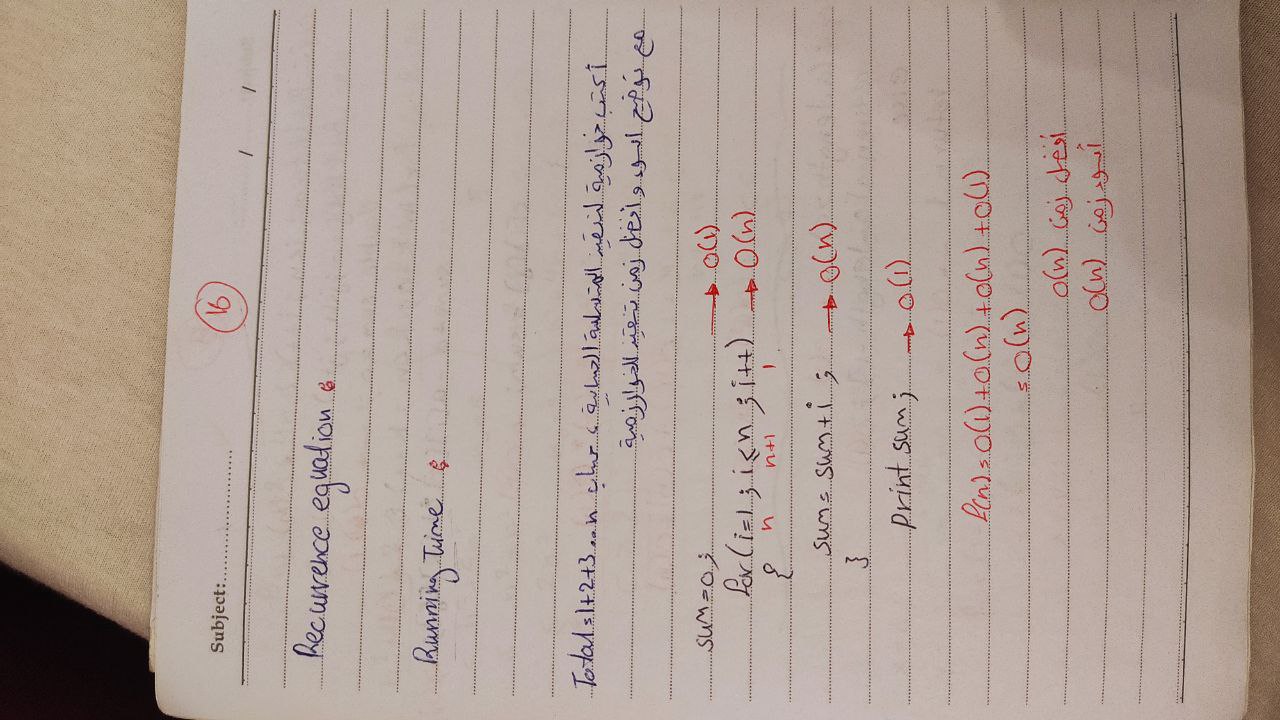 Subject:
/ /
16
Recurrence equation :
Running Time :
Total = 1+2+3...n أكتب خوارزمية لتنفيذ المتسلسلة الحسابية ، حساب
مع توضيح اسوء وافضل زمن تنفيذ للخوارزمية
sum=0; → O(1)
for(i=1; i≤n; i++) → O(n)
n n+1 1
{
sum=sum+i; → O(n)
}
print sum; → O(1)
f(n)=O(1)+O(n)+O(n)+O(1)
= O(n)
O(n) أفضل زمن
O(n) أسوء زمن